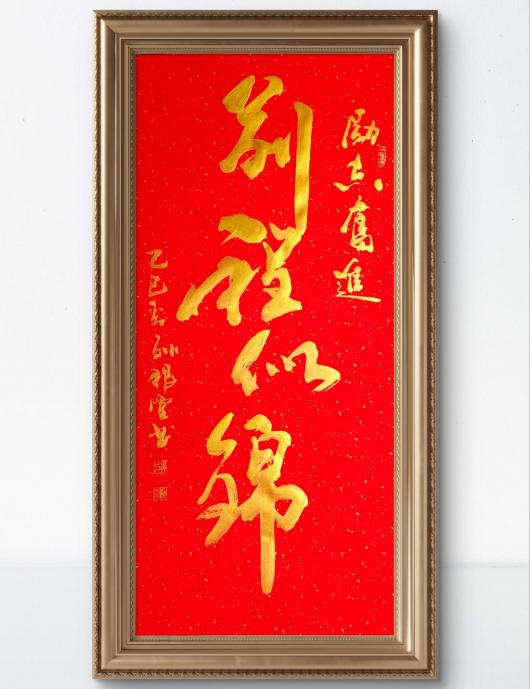 励志奮進
前程似錦
乙巳春孙根堂书